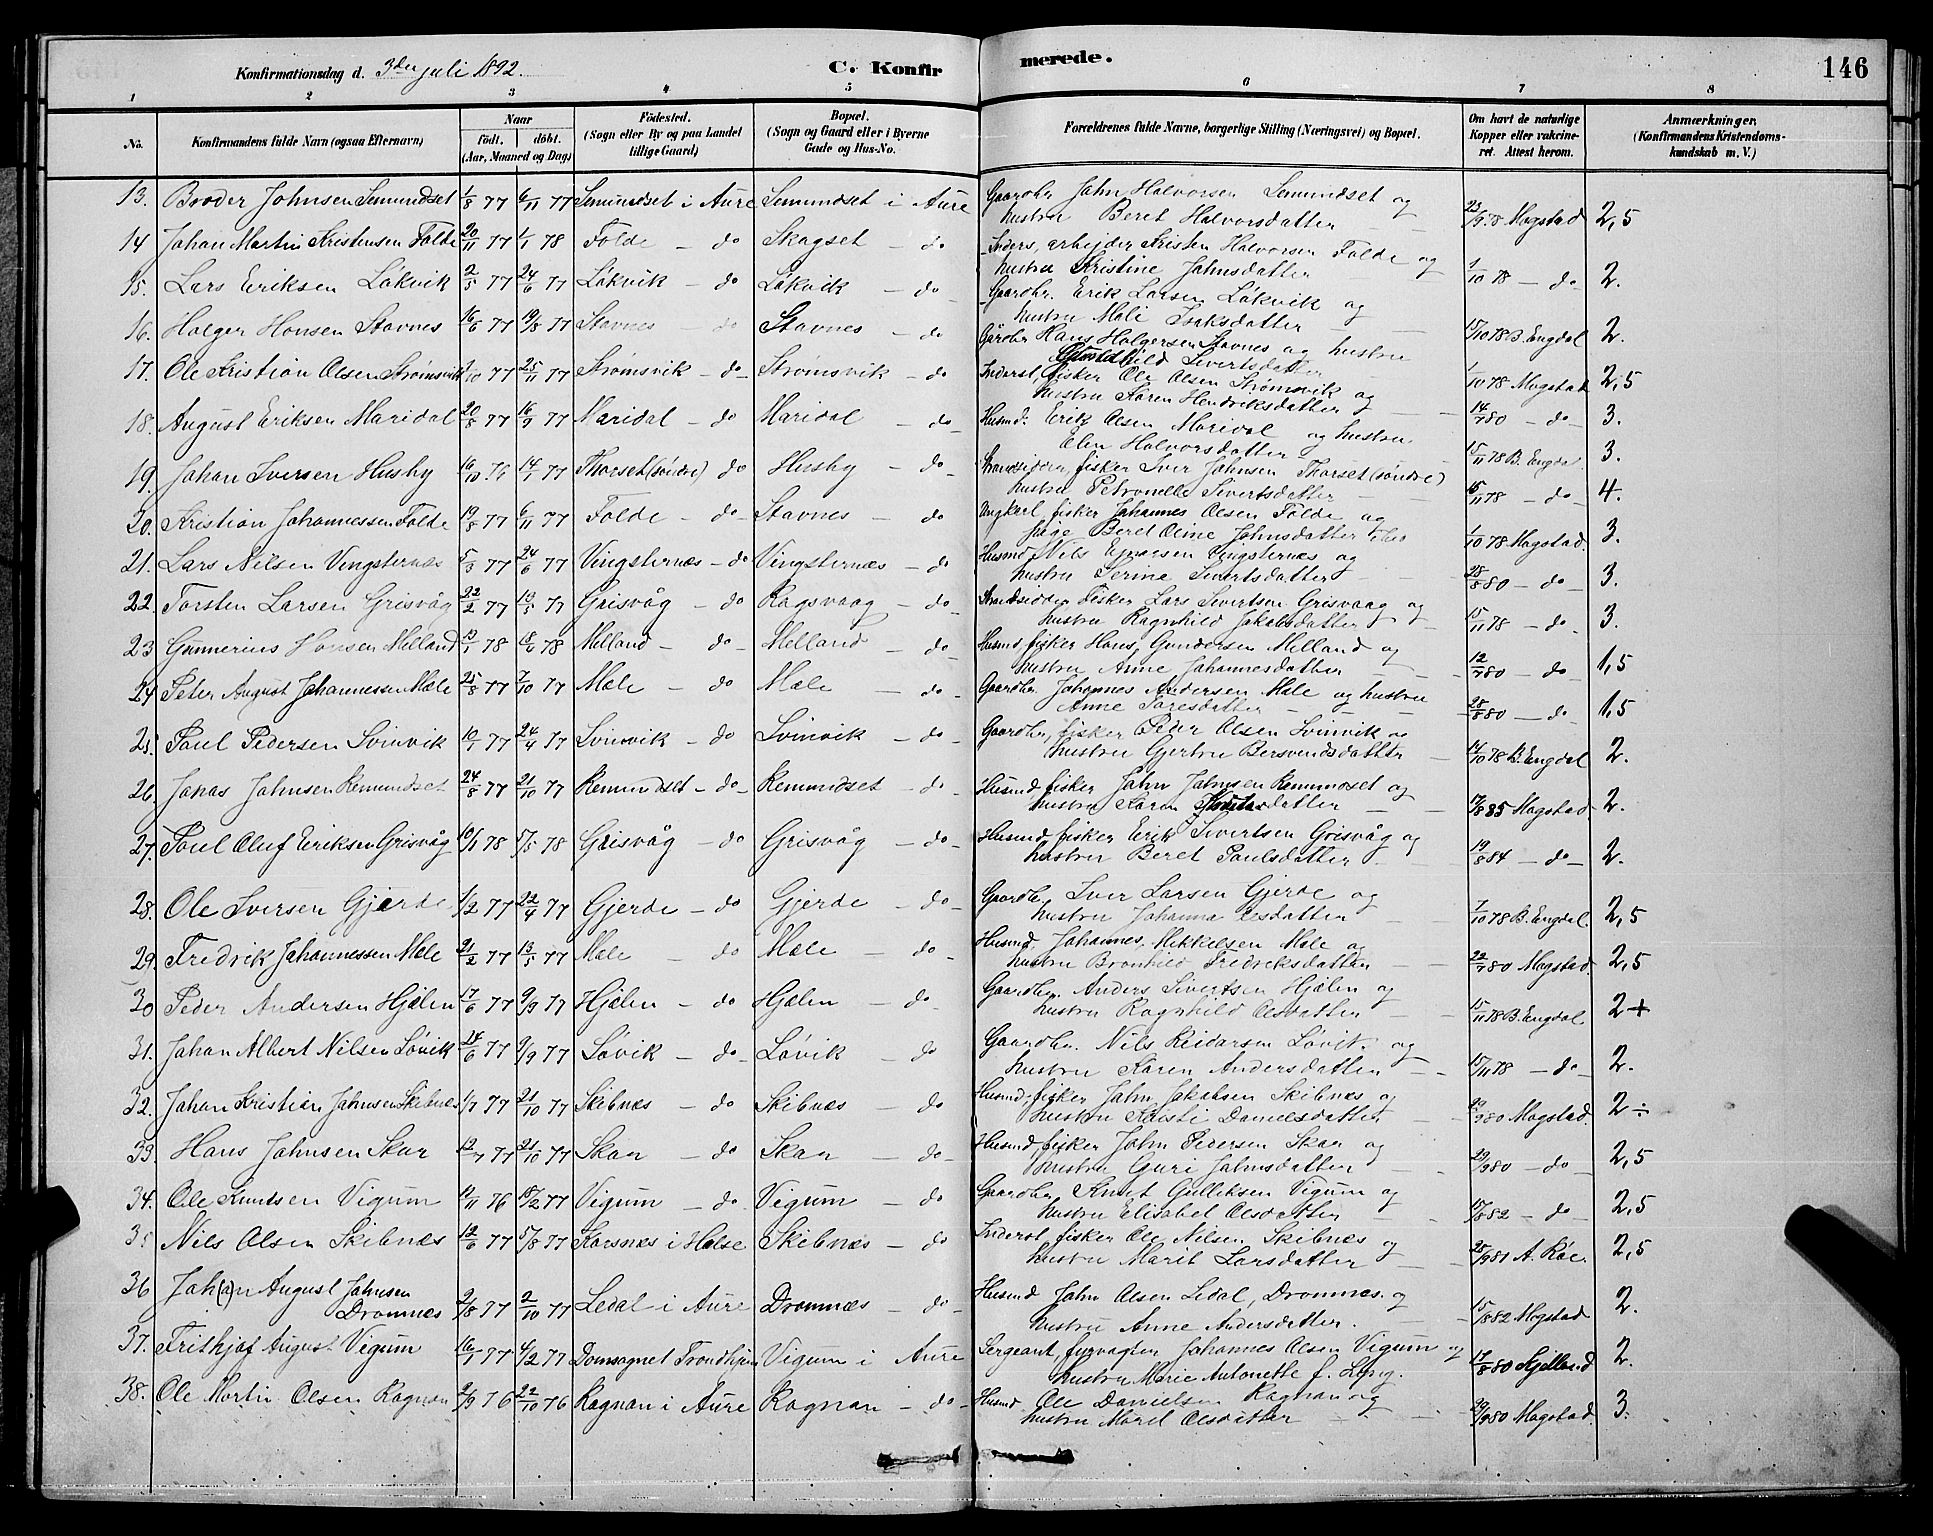 Konfirmationsdag d. 3die juli 1892. C. Konfir merede. 146
1 2 3 4 5 6 7 8
No. Konfirmandens fulde Navn (ogsaa Efternavn) Naar födt. döbt. (Aar, Maaned og Dag) Födested. (Sogn eller By og paa Landet tillige Gaard) Bopæl. (Sogn og Gaard eller i Byerne Gade og Hus-No. Forældrenes fulde Navne, borgerlige Stilling (Næringsvei) og Bopæl. Om havt de naturlige Kopper eller vakcineret. Attest herom. Anmærkninger. (Konfirmandens Kristendomskundskab m. V.)
13. Broder Johnsen Semundset 1/8 77 6/11 77 Semundset i Aure Semundset i Aure Gaardbr. John Halvorsen Semundset og Magstad 2,5
hustru Beret Halvorsdatter
14 Johan Martin Kristensen Folde 20/11 77 1/1 78 Folde - do Skagset - do Inders, arbejder Kristen Halvorsen Folde og 1/10 78 - do - 2.
hustru Kristine Johnsdatter
15. Lars Eriksen Lökvik 2/5 77 24/6 77 Lökvik - do Lökvik - do Gaardbr. Erik Larsen Lökvik og 15/10 78 B. Engdal 2.
hustru Mali Isaksdatter
16. Holger Hansen Stavnes 16/6 77 19/8 77 Stavnes - do Stavnes - do Gårdbr Hans Holgersen Stavnes og hustru 1/10 78 Magstad 2,5
Gunhild Sivertsdatter
17. Ole Kristian Olsen Strømsvik 1/10 77 25/11 77 Strømsvik - do Strømsvik - do Inderst, fisker Ole Olsen Strømsvik og 14/9 80 - do - 3.
hustru Karen Hendriksdatter
18. August Eriksen Maridal 20/8 77 16/9 77 Maridal - do Maridal - do Husmd. Erik Olsen Maridal og hustru 15/11 78 B. Engdal 3.
Elen Halvorsdatter
19. Johan Iversen Husby 16/10 76 14/1 77 Thorset (söndre) do Husby - do Strandsidder, fisker Iver Johnsen Thorset (söndre) 15/11 78 - do 4.
hustru Petronelle Sivertsdatter
20. Kristian Johannessen Folde 19/8 77 6/11 77 Folde - do Stavnes - do Ungkarl, fisker Johannes Olsen Folde og 1/10 78 Magstad 3.
pige Beret Oline Johnsdatter
21. Lars Nilsen Vingsternæs 5/3 77 24/6 77 Vingsternæs - do Vingsternæs - do Husmd Nils Vingsternes og 28/8 80 - do - 3.
hustru Serine Sivertsdatter
22. Torsten Larsen Grisvåg 22/2 77 13/5 77 Grisvåg - do Ragsvaag - do Strandsidder fisker Lars Sivertsen Grisvaag og 15/11 78 - do - 3.
hustru Ragnhild Jakobsdatter
23 Gunnerius Hansen Melland 13/1 78 78 Melland - do Melland - do Husmd, fisker Hans Gundersen Melland og 12/9 80 - do - 1,5
hustru Anne Johannesdatter
24 Peter August Johannessen Mæle 25/8 77 7/10 77 Mæle - do Mæle - do Gaardbr. Johannes Andersen Mæle og hustru 28/8 80 - do 1,5
Anne Toresdatter
25. Paul Pedersen Svinvik 10/1 77 24/4 77 Svinvik - do Svinvik - do Gaardbr, fisker Peder Olsen Svinvik og 14/10 78 B. Engdal 2.
hustru Gjertru Bersvendsdatter
26. Jonas Johnsen Remundset 24/8 77 21/10 77 Remundset - do Remundset - do Husmd, fisker John Johnsen Remundset og 17/8 85 Magstad 2.
hustru Karen
27. Poul Oluf Eriksen Grisvåg 10/1 78 5/5 78 Grisvåg - do Grisvåg - do Husmd, fisker Erik Sivertsen Grisvåg og 19/8 84 - do - 2.
hustru Beret Paulsdatter
28. Ole Iversen Gjerde 1/2 77 22/4 77 Gjerde - do Gjerde - do Gaardbr Iver Larsen Gjerde og 7/10 78 B. Engdal. 2,5
hustru Johanna Olsdatter
29. Fredrik Johannessen Mæle 21/2 77 13/5 77 Mæle do Mæle - do Husmd. Johannes Mikkelsen Mæle og 22/9 80 Magstad 2,5
hustru Brønhild Fredriksdatter
30 Peder Andersen Hjælen 17/6 77 9/9 77 Hjælen - do Hjælen - do Gaardbr. Anders Sivertsen Hjælen og 15/11 78 B. Engdal 2+
hustru Ragnhild Olsdatter
31. Johan Albert Nilsen Løvik 24/6 77 9/9 77 Løvik - do Løvik - do Gaardbr. Nils Reidarsen Løvik og 15/11 78 - do - 2.
hustru Karen Andersdatter
32. Johan Kristian Johnsen Skibnæs 1/7 77 21/10 77 Skibnæs - do Skibnæs - do Husmd, fisker John Jakobsen Skibnæs og 29/9 80 Magstad. 2÷
hustru Kristi Danielsdatter
33. Hans Johnsen Skar 12/7 77 21/10 77 Skar - do Skar - do Husmd, fisker John Pedersen Skar og 29/9 80 - do - 2,5
hustru Guri Johnsdatter
34. Ole Knutsen Vigum 11/11 76 18/2 77 Vigum - do Vigum - do Gaardbr Knut Gulliksen Vigum og 17/8 82 - do - 2,5
hustru Elisabet Olsdatter
35 Nils Olsen Skibnæs 12/6 77 5/8 77 Korsnæs i Halse Skibnæs - do Inderst, fisker Ole Nilsen Skibnæs og 25/9 81 A. Röe. 2,5
hustru Marit Larsdatter
36 Joh(a)n August Johnsen Dromnæs 2/8 77 2/10 77 Ledal i Aure Dromnæs - do - Husmd John Olsen Ledal, Dromnæs og 15/8 82 Magstad 2.
hustru Anne Andersdatter.
37. Frithjof August Vigum 16/1 77 4/2 77 Domsognet Trondhjem Vigum i Aure Sergeant, fyrvogter Johannes Olsen Vigum og 17/8 80 Kjelland 2.
hustru Marie Antonette f.
38. Ole Martin Olsen Ragnan 2/9 76 22/10 76 Ragnan i Aure Ragnan - do - Husmd Ole Danielsen Ragnan og 29/9 80 Magstad. 3.
hustru Maret Olsdatter